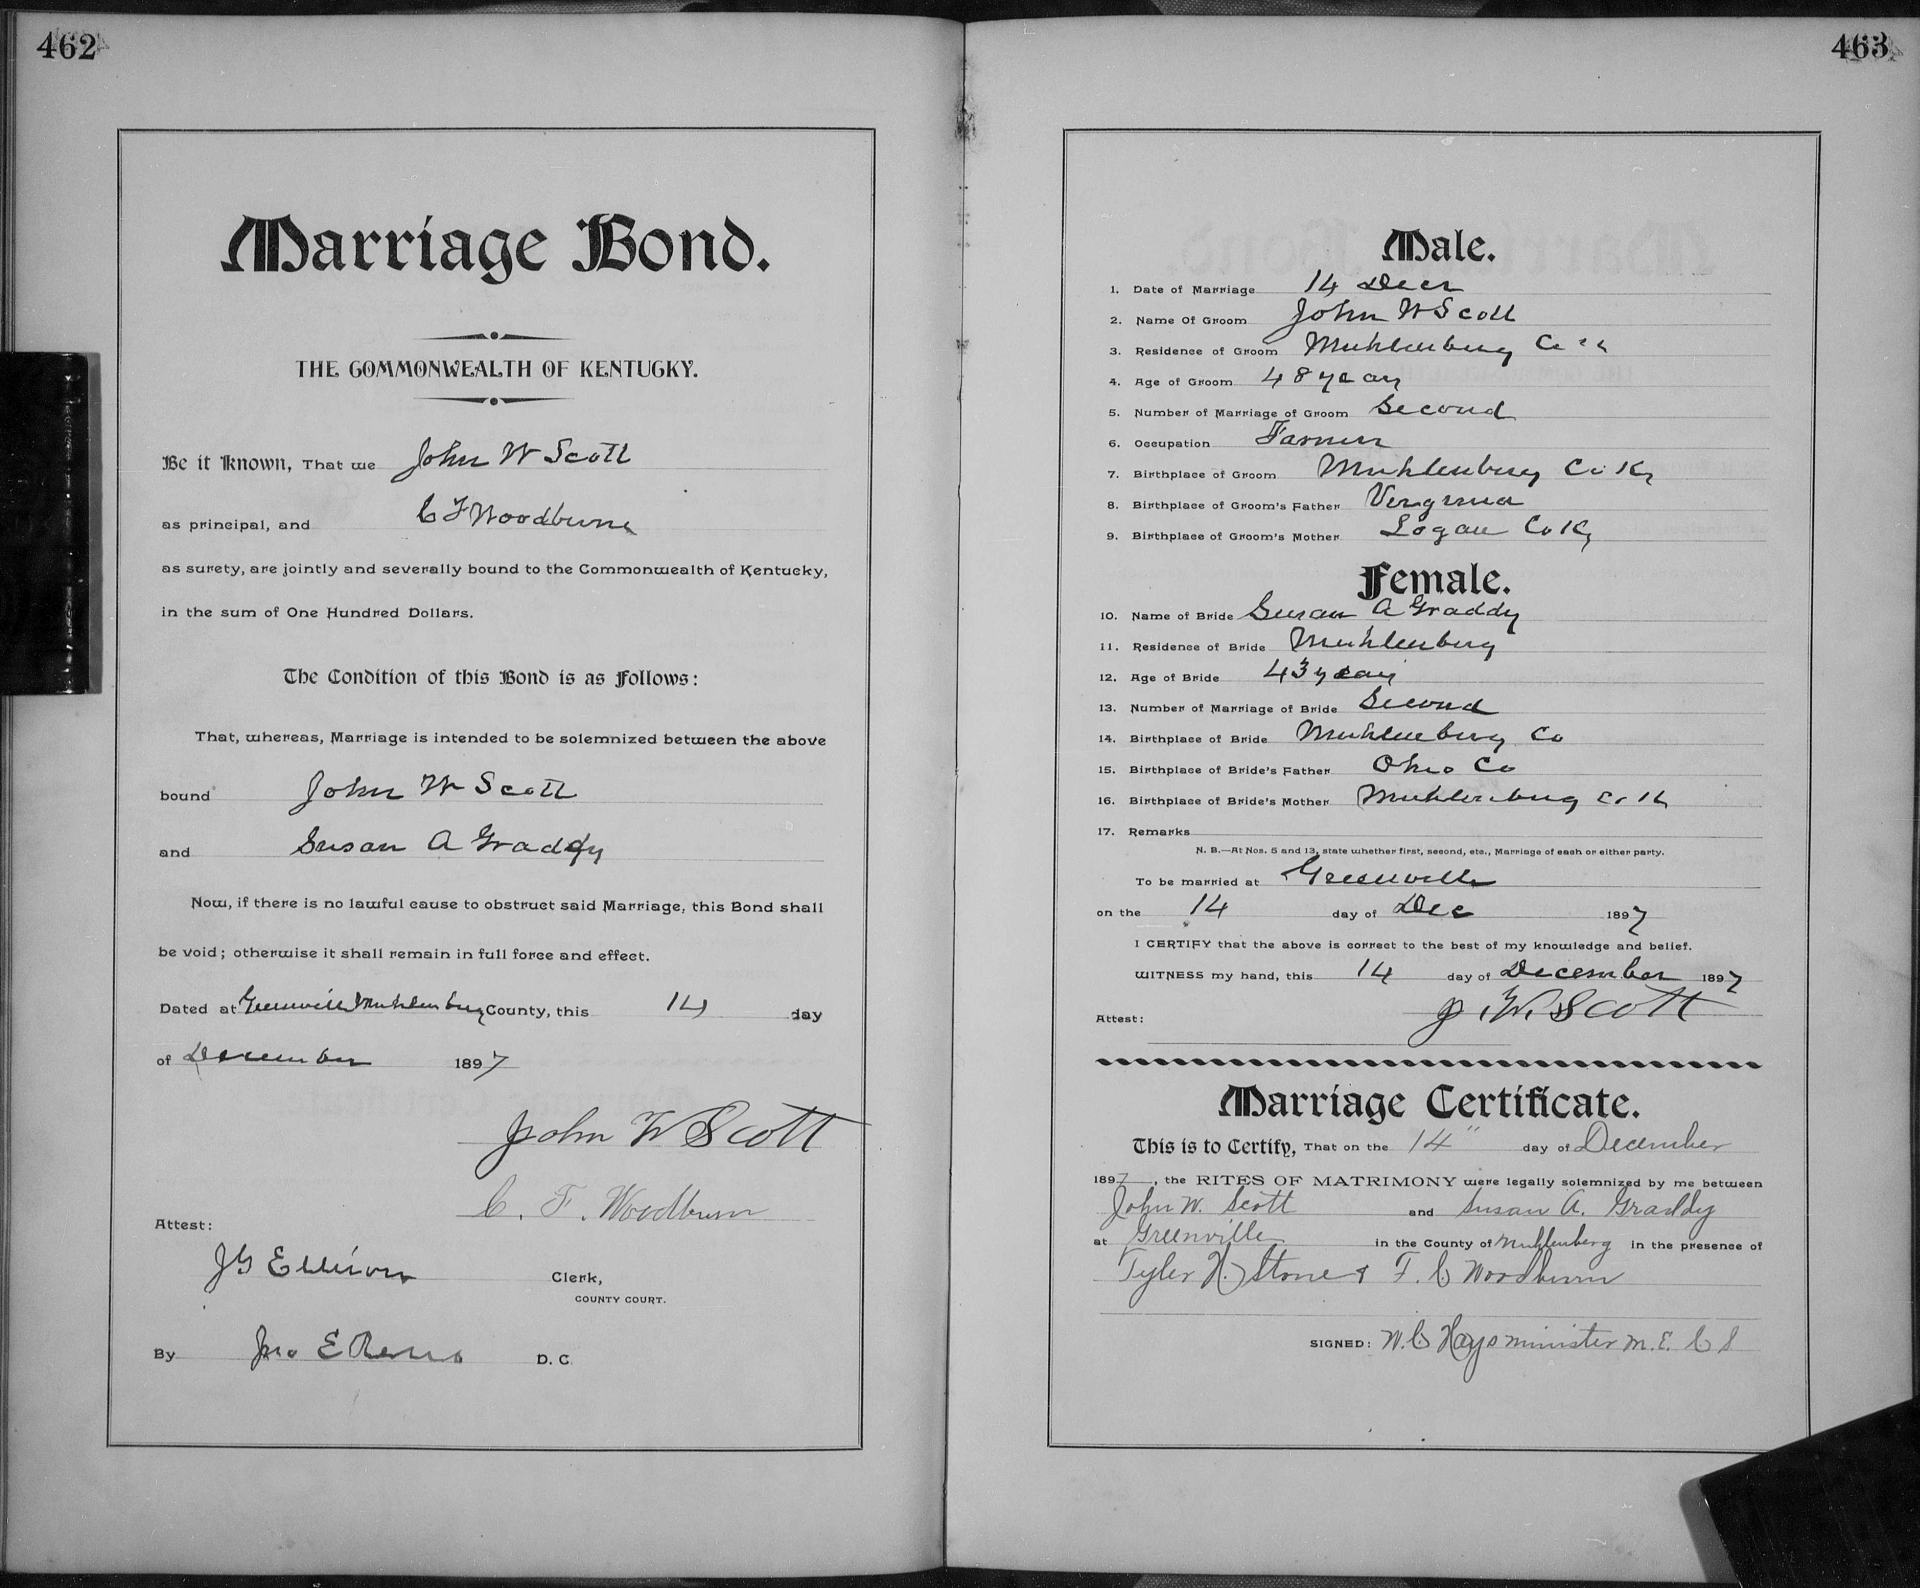 462
Marriage Bond.
THE COMMONWEALTH OF KENTUCKY.
Be it Known, That we John W Scott
as principal, and C F Woodburn
as surety, are jointly and severally bound to the Commonwealth of Kentucky,
in the sum of One Hundred Dollars.
The Condition of this Bond is as Follows:
That, whereas, Marriage is intended to be solemnized between the above
bound John W Scott
and Susan A Graddy
Now, if there is no lawful cause to obstruct said Marriage, this Bond shall
be void; otherwise it shall remain in full force and effect.
Dated at Greenville Muhlenberg County, this 14 day
of December 1897
John W Scott
C. F. Woodburn
Attest:
J G Ellison Clerk,
COUNTY COURT.
By Jno E Reno D. C.
463
Male.
1. Date of Marriage 14 Decr
2. Name Of Groom John W Scott
3. Residence of Groom Muhlenberg Co
4. Age of Groom 48 years
5. Number of Marriage of Groom Second
6. Occupation Farmer
7. Birthplace of Groom Muhlenberg Co Ky
8. Birthplace of Groom's Father Virginia
9. Birthplace of Groom's Mother Logan Co Ky
Female.
10. Name of Bride Susan A Graddy
11. Residence of Bride Muhlenberg
12. Age of Bride 43 years
13. Number of Marriage of Bride Second
14. Birthplace of Bride Muhlenberg Co
15. Birthplace of Bride's Father Ohio Co
16. Birthplace of Bride's Mother Muhlenberg Co K
17. Remarks
N. B.—At Nos. 5 and 13, state whether first, second, etc., Marriage of each or either party.
To be married at Greenville
on the 14 day of Dec 1897
I CERTIFY that the above is correct to the best of my knowledge and belief.
WITNESS my hand, this 14 day of December 1897
J. W. Scott
Attest:
Marriage Certificate.
This is to Certify, That on the 14" day of December
1897, the RITES OF MATRIMONY were legally solemnized by me between
John W. Scott and Susan A. Graddy
at Greenville in the County of Muhlenberg in the presence of
Tyler H. Stone & F. C. Woodburn
SIGNED: W. C Hays minister M. E. C S